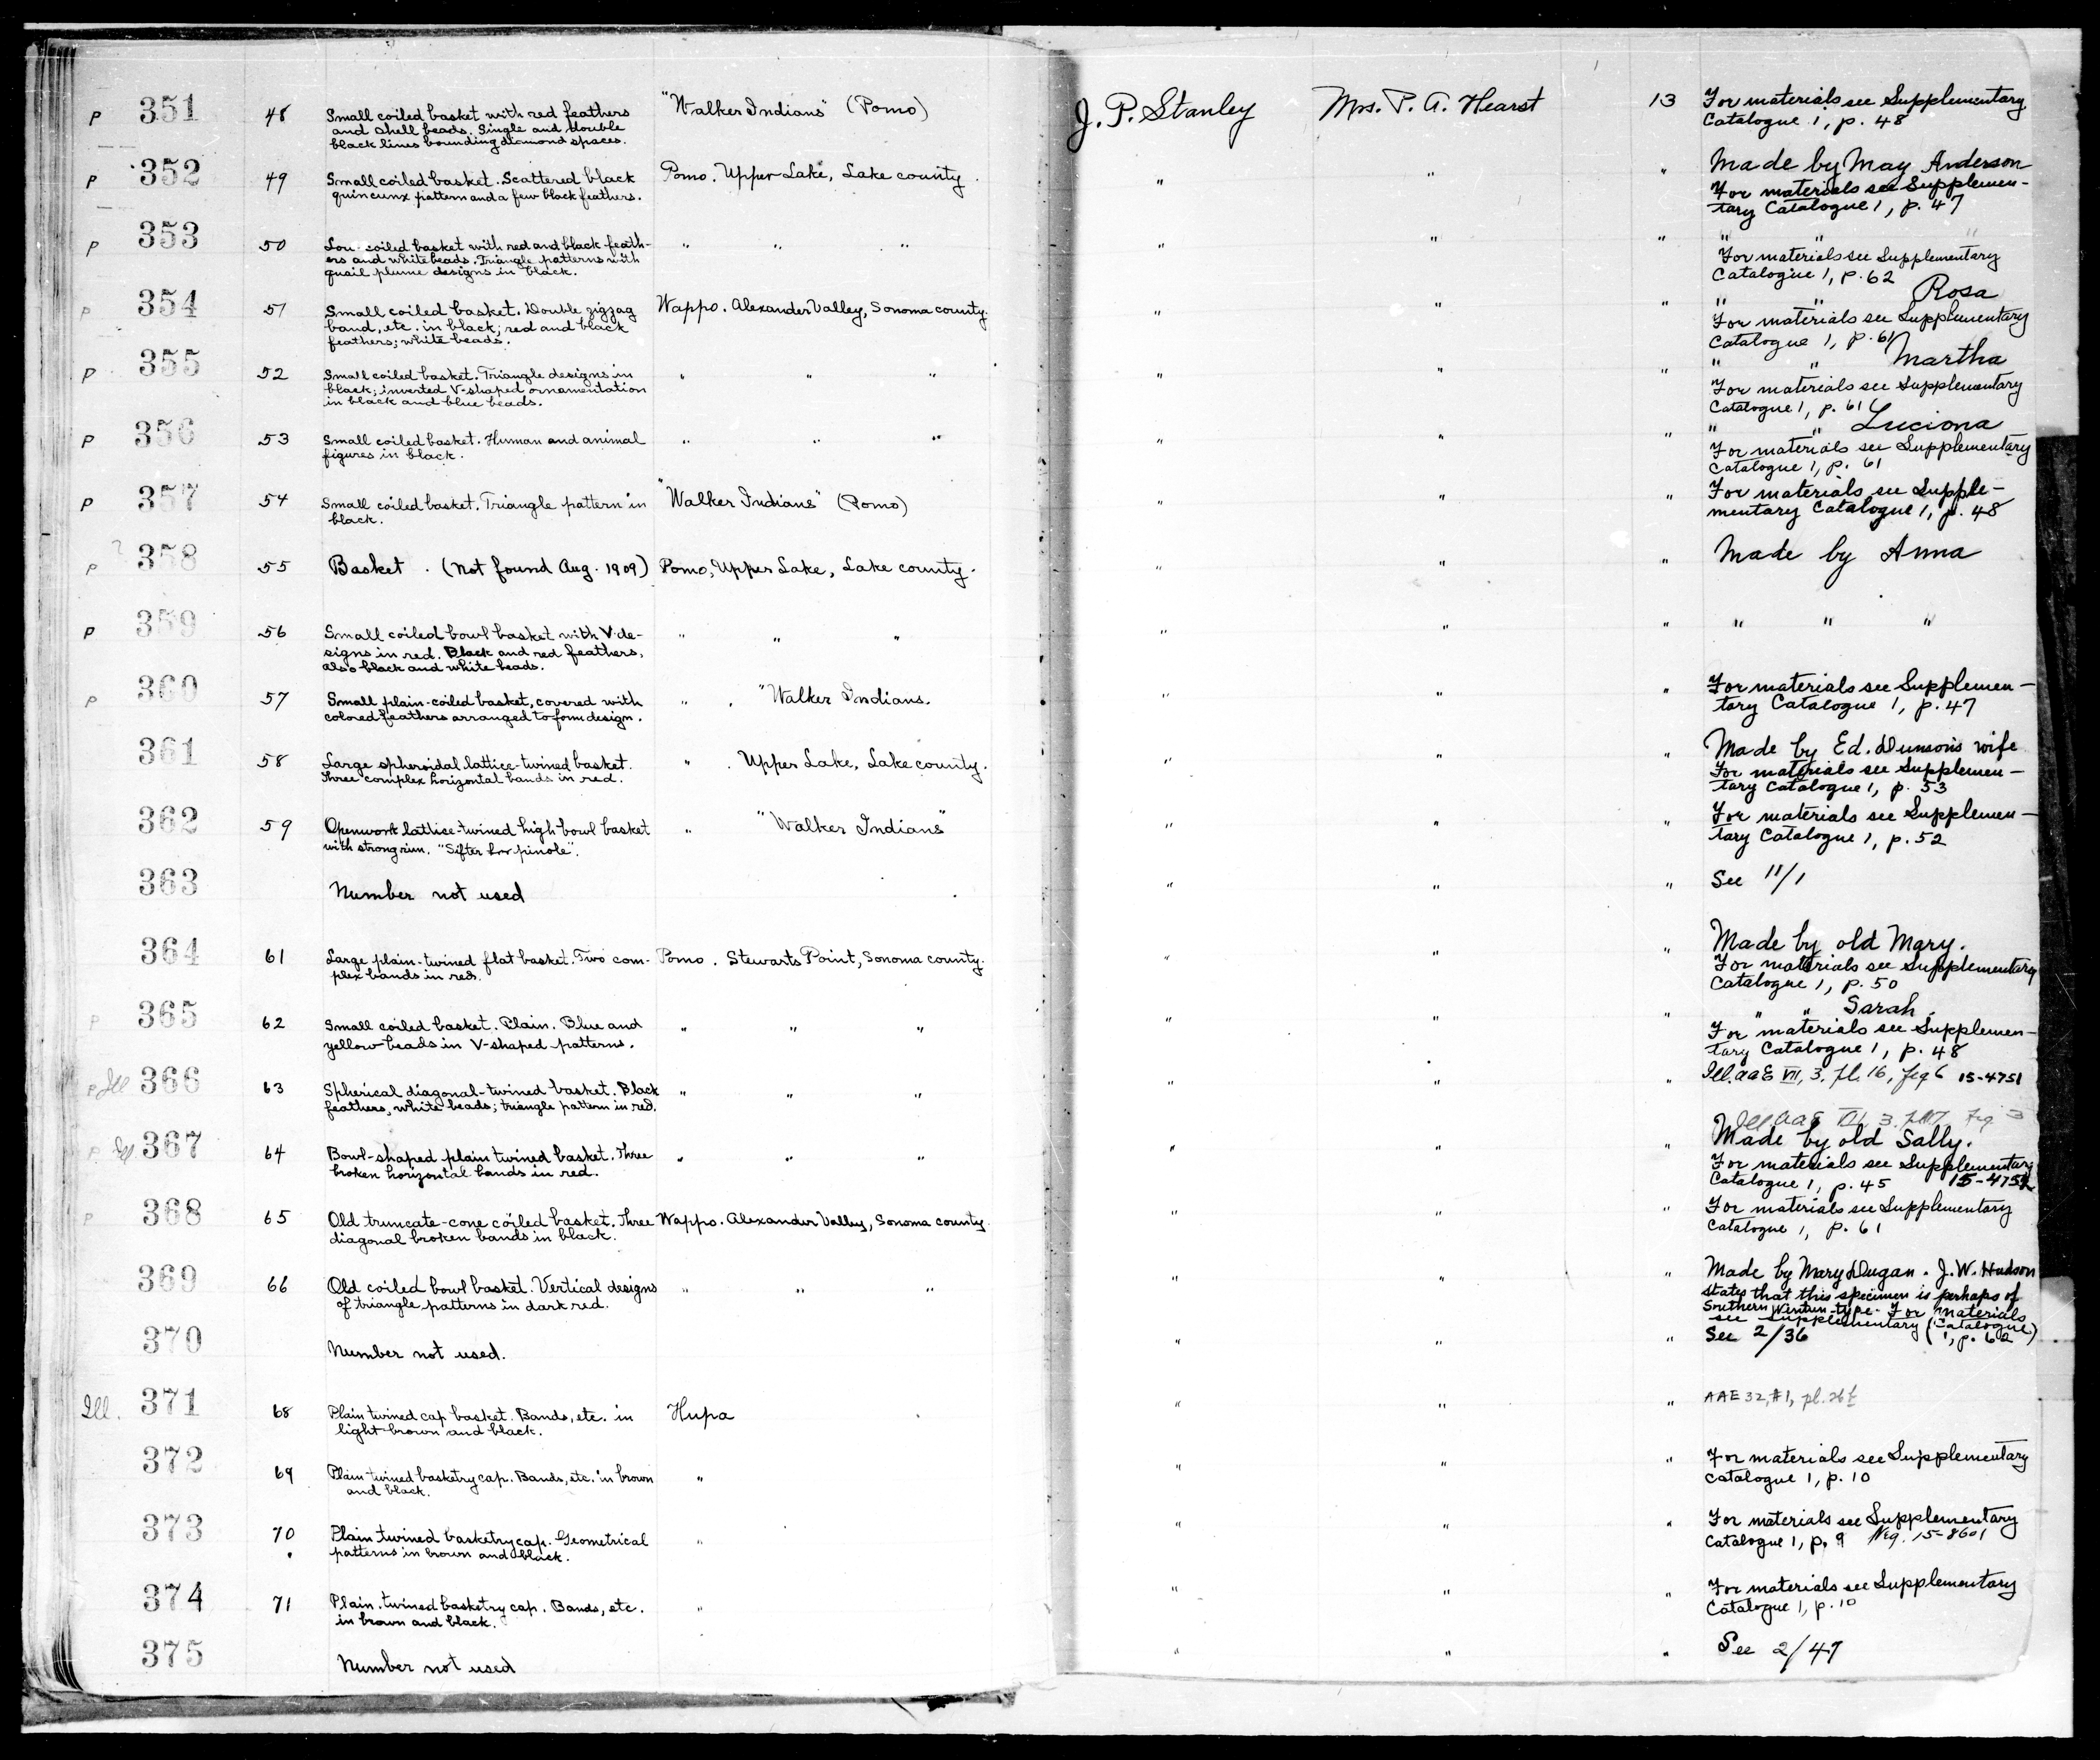 P 351 48 Small coiled basket with red feathers "Walker Indians" (Pomo) J. P. Stanley Mrs. P. A. Hearst 13 For materials see Supplementary
and shell beads. Single and double Catalogue 1, p. 48
black lines bounding diamond spaces.
P 352 49 Small coiled basket. Scattered black Pomo. Upper Lake, Lake county. " " " Made by May Anderson
quincunx pattern and a few black feathers. For materials see Supplemen-
tary Catalogue 1, p. 47
P 353 50 Low coiled basket with red and black feath- " " " " " " " " "
ers and white beads. Triangle patterns with For materials see Supplementary
quail plume designs in black. Catalogue 1, p. 62
P 354 51 Small coiled basket. Double zigzag Wappo. Alexander Valley, Sonoma county. " " " " " Rosa
band, etc. in black; red and black For materials see Supplementary
feathers; white beads. Catalogue 1, p. 61
P 355 52 Small coiled basket. Triangle designs in " " " " " " " " Martha
black; inverted V-shaped ornamentation For materials see Supplementary
in black and blue beads. Catalogue 1, p. 61
P 356 53 Small coiled basket. Human and animal " " " " " " " " Luciona
figures in black. For materials see Supplementary
Catalogue 1, p. 61
P 357 54 Small coiled basket. Triangle pattern in "Walker Indians" (Pomo) " " " For materials see Supple-
black. mentary Catalogue 1, p. 48
? P 358 55 Basket. (Not found Aug. 1909) Pomo, Upper Lake, Lake county. " " " Made by Anna
P 359 56 Small coiled bowl basket with V-de- " " " " " " " " "
signs in red. Black and red feathers,
also black and white beads.
P 360 57 Small plain-coiled basket, covered with " . "Walker Indians. " " " For materials see Supplemen-
colored feathers arranged to form design. tary Catalogue 1, p. 47
361 58 Large spheroidal lattice-twined basket. " . Upper Lake, Lake county. " " " Made by Ed. Dunson's wife
Three complex horizontal bands in red. For materials see Supplemen-
tary Catalogue 1, p. 53
362 59 Openwork lattice-twined high bowl basket " "Walker Indians" " " " For materials see Supplemen-
with strong rim. "Sifter for pinole". tary Catalogue 1, p. 52
363 Number not used " " " See 11/1
364 61 Large plain-twined flat basket. Two com- Pomo. Stewarts Point, Sonoma county. " " " Made by old Mary.
plex bands in red. For materials see Supplementary
Catalogue 1, p. 50
P 365 62 Small coiled basket. Plain. Blue and " " " " " " " " Sarah.
yellow beads in V-shaped patterns. For materials see Supplemen-
tary Catalogue 1, p. 48
P Ill 366 63 Spherical diagonal-twined basket. Black " " " " " " Ill. AAE VII, 3. pl. 16, fig 6 15-4751
feathers, white beads; triangle pattern in red.
Ill AAE VII, 3. Fig 3
P Ill 367 64 Bowl-shaped plain twined basket. Three " " " " " " Made by old Sally.
broken horizontal bands in red. For materials see Supplementary
Catalogue 1, p. 45
P 368 65 Old truncate-cone coiled basket. Three Wappo. Alexander Valley, Sonoma county. " " " For materials see Supplementary
diagonal broken bands in black. Catalogue 1, p. 61
369 66 Old coiled bowl basket. Vertical designs " " " " " " Made by Mary Dugan. J. W. Hudson
of triangle patterns in dark red. states that this specimen is perhaps of
Southern Wintun type. For materials
see Supplementary (Catalogue)
1, p. 62
370 Number not used. " " " See 2/36
Ill. 371 68 Plain twined cap basket. Bands, etc. in Hupa " " " AAE 32, #1, pl. 26f
light brown and black.
372 69 Plain twined basketry cap. Bands, etc. in brown " " " " For materials see Supplementary
and black. Catalogue 1, p. 10
373 70 Plain twined basketry cap. Geometrical " " " " For materials see Supplementary
patterns in brown and black. Catalogue 1, p. 9 Neg. 15-8601
374 71 Plain twined basketry cap. Bands, etc. " " " " For materials see Supplementary
in brown and black. Catalogue 1, p. 10
375 Number not used " " " See 2/47